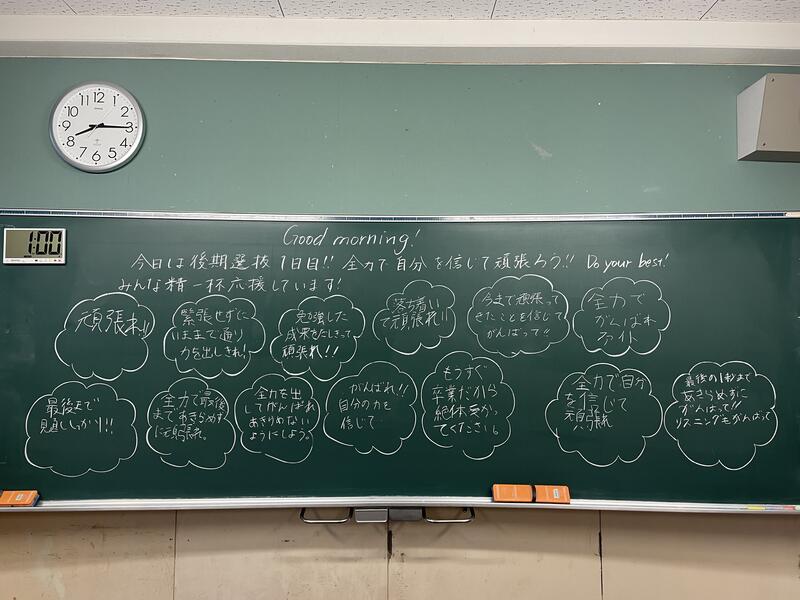 12
1
2
3
4
5
6
7
8
9
10
11
1:00
Good morning!
今日は後期選抜1日目!! 全力で自分を信じて頑張ろう!! Do your best!
みんな精一杯応援しています!
頑張れ!!
緊張せずに
いままで通り
力を出しきれ!
勉強した
成果をだしきって
頑張れ!!
落ち着い
て頑張れ!!
今まで頑張って
きたことを信じて
がんばって!!
全力で
がんばれ
ファイト
最後まで
見直ししっかり!!
全力で最後
まであきらめず
に頑張れ。
全力を出
してがんばれ
あきらめない
ようにしよう。
がんばれ!!
自分の力を
信じて
もうすぐ
卒業だから
絶体受かっ
てください。
全力で自分
を信じて
頑張れ
最後の1秒まで
あきらめずに
がんばって!!
リスニングもがんばって